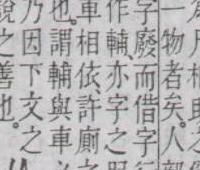 物者矣。人
字廢而借字行
作輔、亦字之
軍相依、許廁
也。謂輔與車
乃因下文之
說之善也。